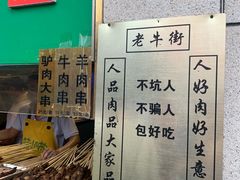 驴肉大串
牛肉大串
羊肉串
老牛街
人品肉品大家品
不坑人
不骗人
包好吃
人好肉好生意